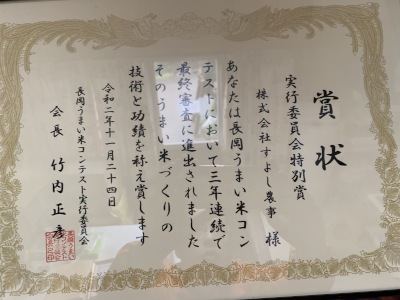 賞状
実行委員会特別賞
株式会社すよし農事 様
あなたは長岡うまい米コン
テストにおいて三年連続で
最終審査に進出されました
そのうまい米づくりの
技術と功績を称え賞します
令和二年十一月二十四日
長岡うまい米コンテスト実行委員会
会長 竹内正彦